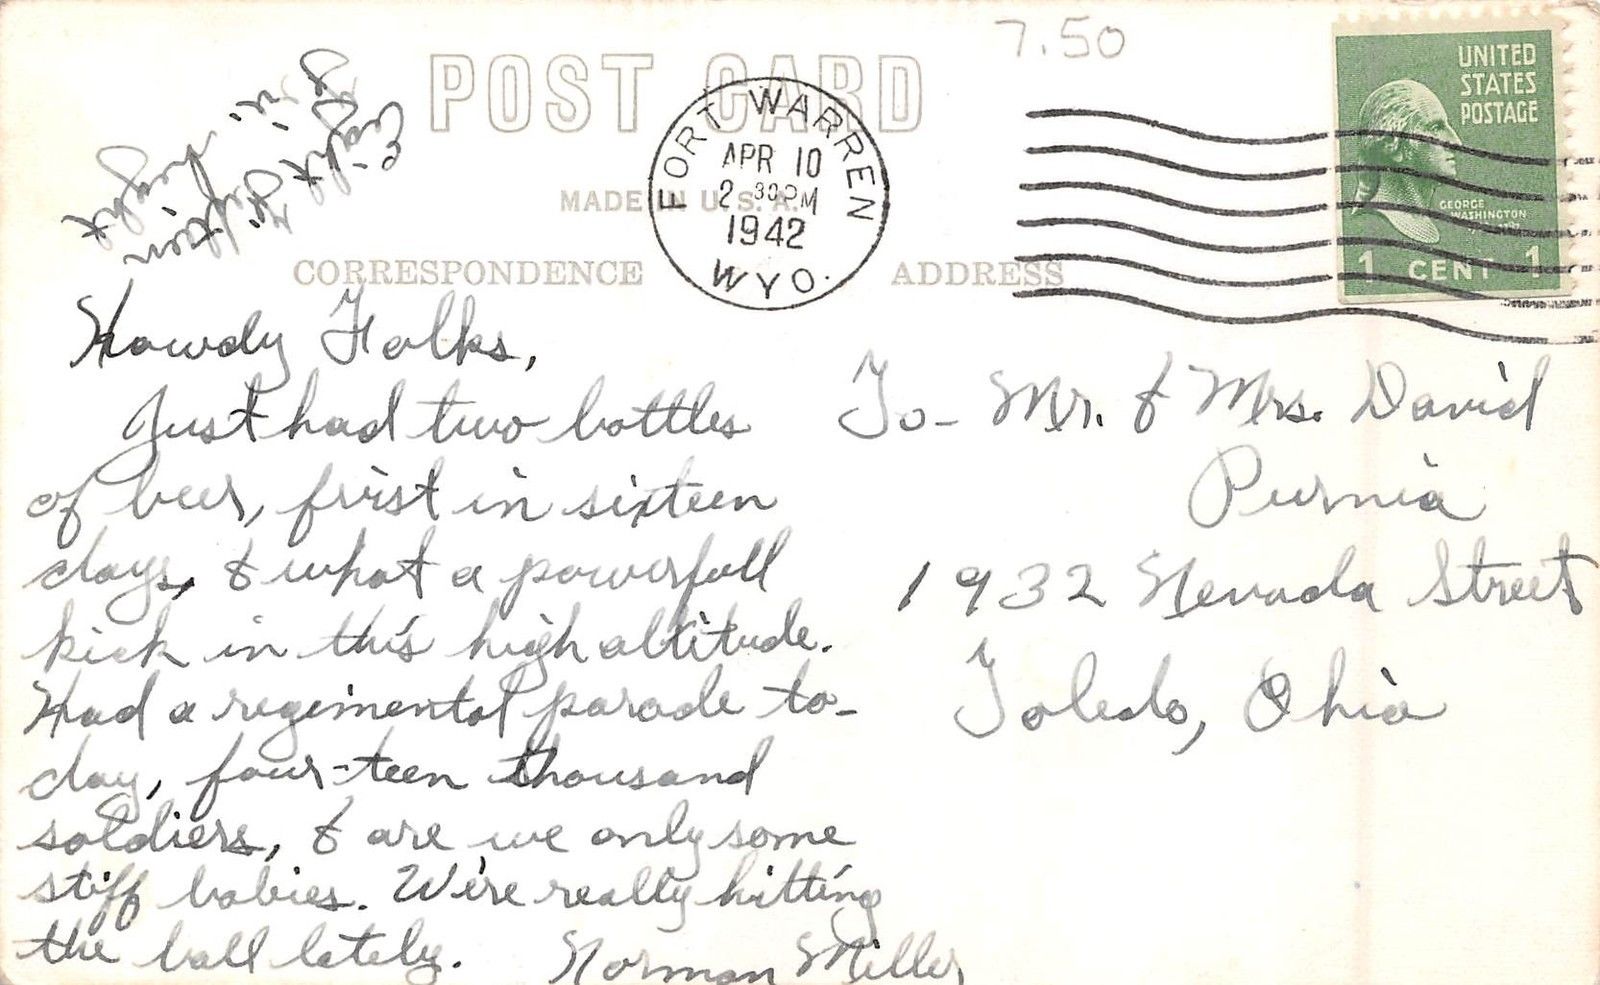 7.50
POST CARD
UNITED
STATES
POSTAGE
GEORGE
WASHINGTON
1 CENT 1
FORT WARREN
APR 10
2 30 PM
1942
WYO.
MADE IN U.S.A.
CORRESPONDENCE
ADDRESS
Howdy Folks,
Just had two bottles
of beer, first in sixteen
days, & what a powerfull
kick in this high altitude.
Had a regimental parade to-
day, four-teen thousand
soldiers, & are we only some
stiff babies. We're really hitting
the ball lately.
Norman Miller
To- Mr. & Mrs. David
Purnia
1932 Nevada Street
Toledo, Ohio